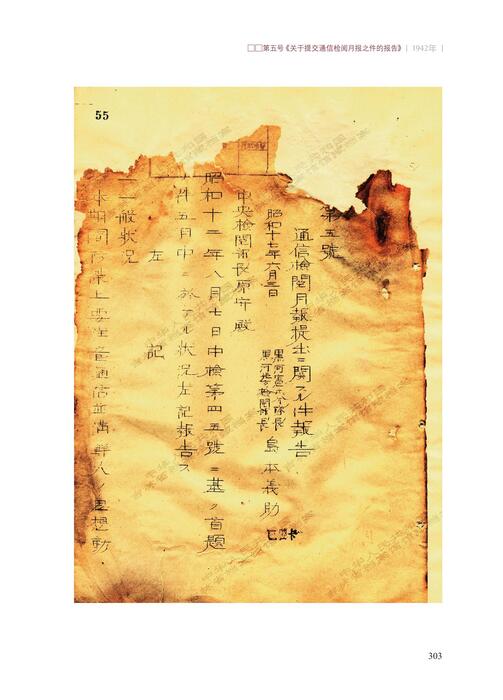 □□第五号《关于提交通信检阅月报之件的报告》 | 1942年 |
55
第五號
通信檢閲月報提出ニ關スル件報告
昭和十七年六月三日
黒河憲兵隊長
黒河檢閲部長 島本義助
中央檢閲部長原守殿
昭和十二年八月七日中檢第四五號ニ基ク首題
ノ件五月中ニ於ケル状況左記報告ス
左 記
一 一般状況
本期間防諜上要注意通信並満鮮人ノ思想動
303